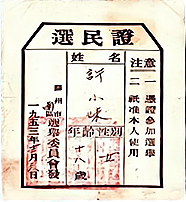 選民證
注意
一 憑證參加選舉
二 祇准本人使用
姓名
許小妹
性別
女
年齡
十八歲
蘇州市
南區選舉委員會發
一九五三年十二月 日